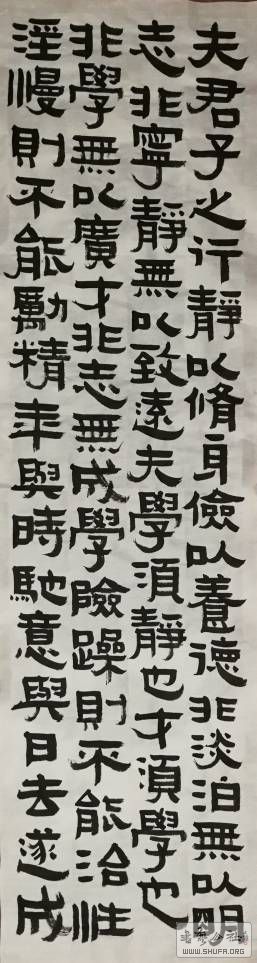 夫君子之行靜以脩身儉以養德非淡泊無以明
志非寧靜無以致遠夫學須靜也才須學也
非學無以廣才非志無成學險躁則不能治性
淫慢則不能勵精年與時馳意與日去遂成
WWW.SHUFA.ORG